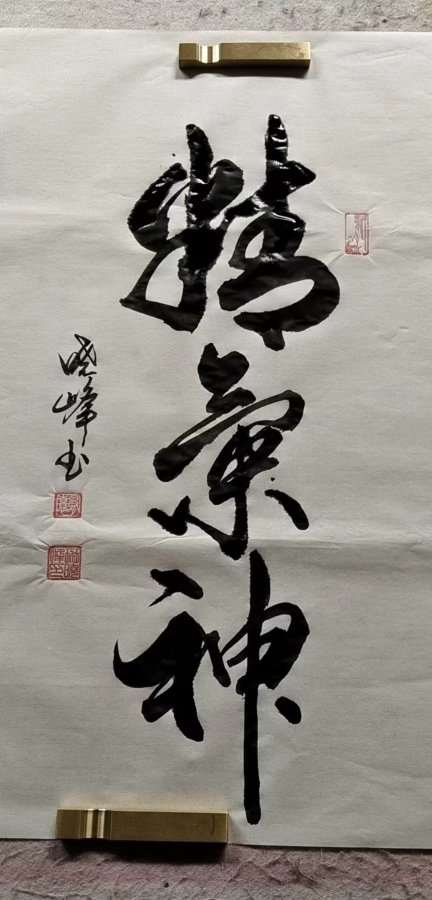 精氣神
晓峰书